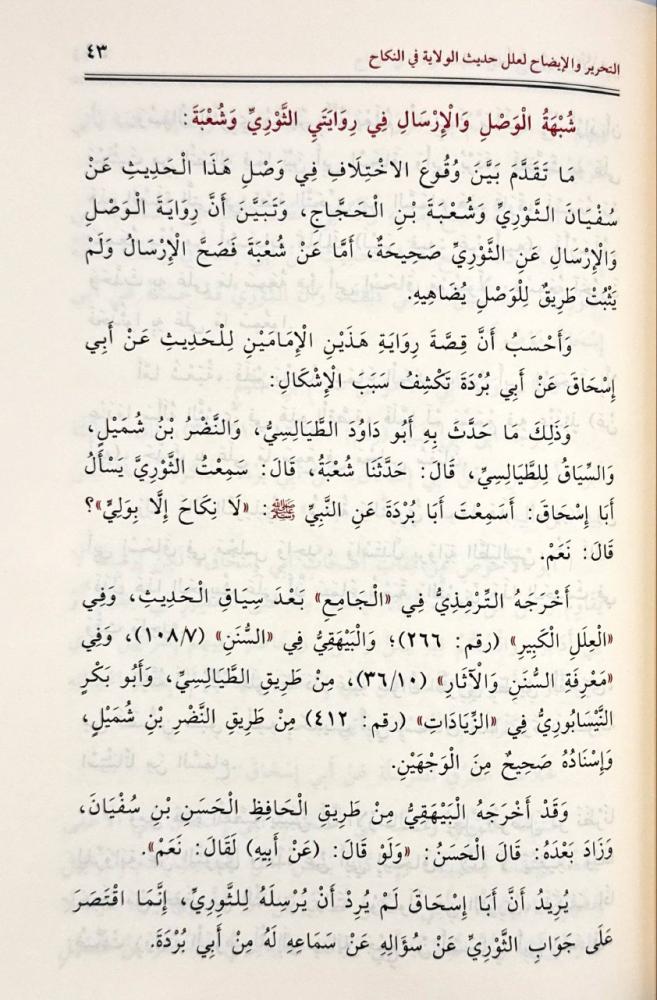 التحرير والإيضاح لعلل حديث الولاية في النكاح ٤٣
شُبْهَةُ الْوَصْلِ وَالْإِرْسَالِ فِي رِوَايَتَيِ الثَّوْرِيِّ وَشُعْبَةَ:
مَا تَقَدَّمَ بَيَّنَ وُقُوعَ الاخْتِلَافِ فِي وَصْلِ هَذَا الْحَدِيثِ عَنْ
سُفْيَانَ الثَّوْرِيِّ وَشُعْبَةَ بْنِ الْحَجَّاجِ، وَتَبَيَّنَ أَنَّ رِوَايَةَ الْوَصْلِ
وَالْإِرْسَالِ عَنِ الثَّوْرِيِّ صَحِيحَةٌ، أَمَّا عَنْ شُعْبَةَ فَصَحَّ الْإِرْسَالُ وَلَمْ
يَثْبُتْ طَرِيقٌ لِلْوَصْلِ يُضَاهِيهِ.
وَأَحْسَبُ أَنَّ قِصَّةَ رِوَايَةِ هَذَيْنِ الْإِمَامَيْنِ لِلْحَدِيثِ عَنْ أَبِي
إِسْحَاقَ عَنْ أَبِي بُرْدَةَ تَكْشِفُ سَبَبَ الْإِشْكَالِ:
وَذَلِكَ مَا حَدَّثَ بِهِ أَبُو دَاوُدَ الطَّيَالِسِيُّ، وَالنَّضْرُ بْنُ شُمَيْلٍ،
وَالسِّيَاقُ لِلطَّيَالِسِيِّ، قَالَ: حَدَّثَنَا شُعْبَةُ، قَالَ: سَمِعْتُ الثَّوْرِيَّ يَسْأَلُ
أَبَا إِسْحَاقَ: أَسَمِعْتَ أَبَا بُرْدَةَ عَنِ النَّبِيِّ ﷺ: «لَا نِكَاحَ إِلَّا بِوَلِيٍّ»؟
قَالَ: نَعَمْ.
أَخْرَجَهُ التِّرْمِذِيُّ فِي «الْجَامِعِ» بَعْدَ سِيَاقِ الْحَدِيثِ، وَفِي
«الْعِلَلِ الْكَبِيرِ» (رقم: ٢٦٦)؛ وَالْبَيْهَقِيُّ فِي «السُّنَنِ» (١٠٨/٧)، وَفِي
«مَعْرِفَةِ السُّنَنِ وَالْآثَارِ» (٣٦/١٠)، مِنْ طَرِيقِ الطَّيَالِسِيِّ، وَأَبُو بَكْرٍ
النَّيْسَابُورِيُّ فِي «الزِّيَادَاتِ» (رقم: ٤١٢) مِنْ طَرِيقِ النَّضْرِ بْنِ شُمَيْلٍ،
وَإِسْنَادُهُ صَحِيحٌ مِنَ الْوَجْهَيْنِ.
وَقَدْ أَخْرَجَهُ الْبَيْهَقِيُّ مِنْ طَرِيقِ الْحَافِظِ الْحَسَنِ بْنِ سُفْيَانَ،
وَزَادَ بَعْدَهُ: قَالَ الْحَسَنُ: «وَلَوْ قَالَ: (عَنْ أَبِيهِ) لَقَالَ: نَعَمْ».
يُرِيدُ أَنَّ أَبَا إِسْحَاقَ لَمْ يُرِدْ أَنْ يُرْسِلَهُ لِلثَّوْرِيِّ، إِنَّمَا اقْتَصَرَ
عَلَى جَوَابِ الثَّوْرِيِّ عَنْ سُؤَالِهِ عَنْ سَمَاعِهِ لَهُ مِنْ أَبِي بُرْدَةَ.